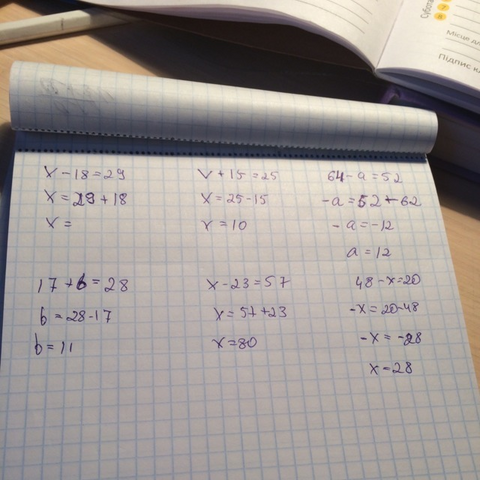 Субота
Місце дл
Підпис кл
x - 18 = 29
x = 29 + 18
x =
x + 15 = 25
x = 25 - 15
x = 10
64 - a = 52
-a = 52 - 62
-a = -12
a = 12
17 + b = 28
b = 28 - 17
b = 11
x - 23 = 57
x = 57 + 23
x = 80
48 - x = 20
-x = 20 - 48
-x = -28
x = 28